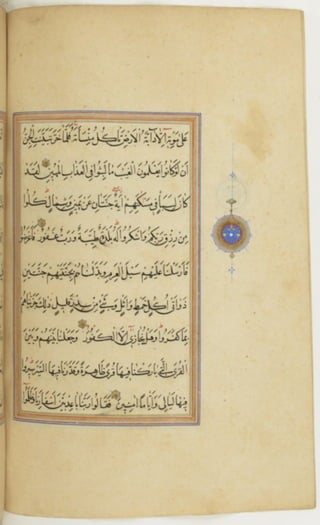 على موته الا دآبة الارض تأكل منسأته فلما خر تبينت الجن
ان لو كانوا يعلمون الغيب ما لبثوا في العذاب المهين لقد
كان لسبأ في مسكنهم آية جنتان عن يمين وشمال كلوا
من رزق ربكم واشكروا له بلدة طيبة ورب غفور فاعرضوا
فارسلنا عليهم سيل العرم وبدلناهم بجنتيهم جنتين
ذواتي اكل خمط واثل وشيء من سدر قليل ذلك جزيناهم
بما كفروا وهل نجازي الا الكفور وجعلنا بينهم وبين
القرى التي باركنا فيها قرى ظاهرة وقدرنا فيها السير سيروا
فيها ليالي واياما آمنين فقالوا ربنا باعد بين اسفارنا وظلموا